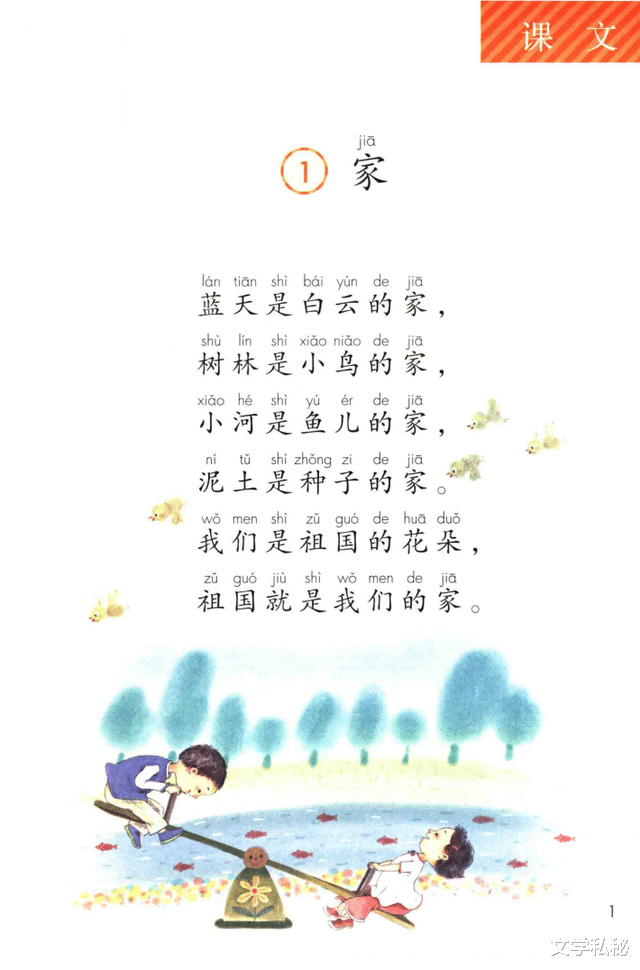 课 文
jiā
1 家
lán tiān shì bái yún de jiā
蓝天是白云的家，
shù lín shì xiǎo niǎo de jiā
树林是小鸟的家，
xiǎo hé shì yú ér de jiā
小河是鱼儿的家，
ní tǔ shì zhǒng zi de jiā
泥土是种子的家。
wǒ men shì zǔ guó de huā duǒ
我们是祖国的花朵，
zǔ guó jiù shì wǒ men de jiā
祖国就是我们的家。
1
文学私秘